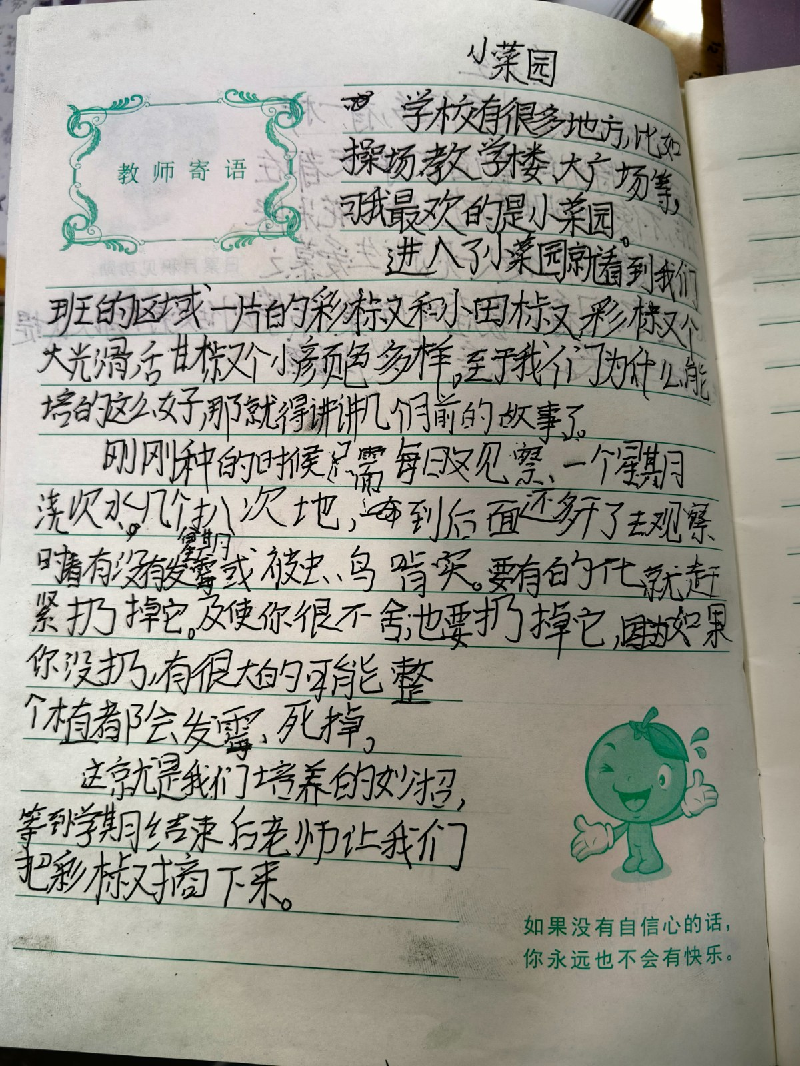 小菜园
教师寄语
学校有很多地方,比如
操场、教学楼、大广场等,
可我最欢的是小菜园。
进入了小菜园就看到我们
班的区域一片的彩椒和小田椒,彩椒个
大光滑,甘椒个小颜色多样。至于我们为什么能
培的这么好,那就得讲讲几个月前的故事了。
刚刚种的时候只需每日观察、一个星期
浇次水。几个扒次地,到后面还多了去观察
时有没有发霉或被虫、鸟啃。要有的
紧扔掉它。及使你很不舍,也要扔掉它,因为如果
你没扔,有很大的可能整
个植都会发霉、死掉。
这就是我们培养的妙招,
等到学期结束后老师让我们
把彩椒摘下来。
如果没有自信心的话,
你永远也不会有快乐。